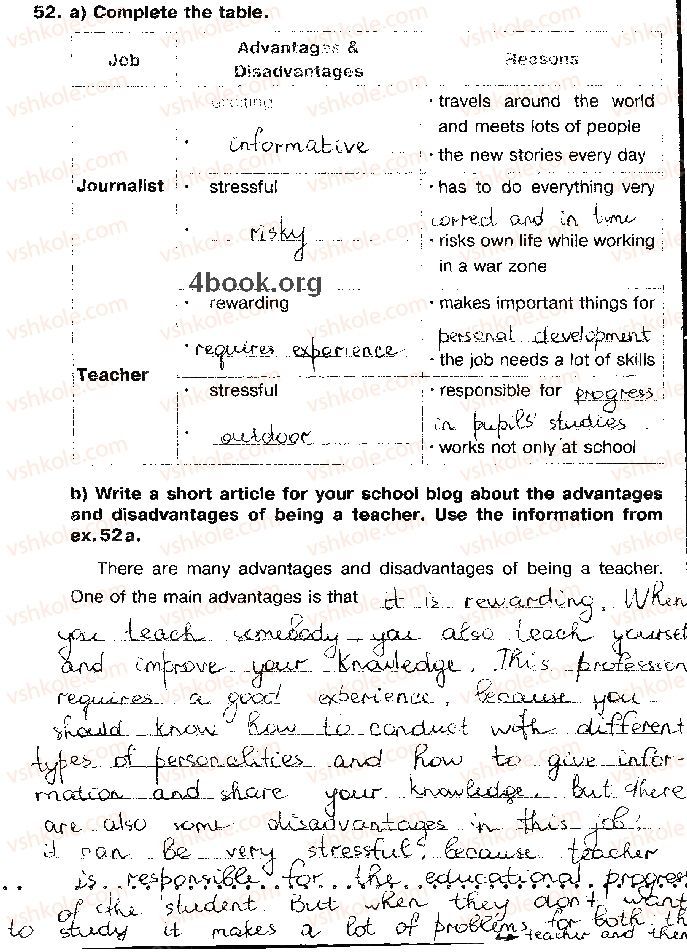 52. a) Complete the table.
Job
Advantages &
Disadvantages
Reasons
Journalist
exciting
• informative
• travels around the world
and meets lots of people
• the new stories every day
• stressful
• risky
• has to do everything very
correct and in time
• risks own life while working
in a war zone
4book.org
Teacher
• rewarding
• requires experience
• makes important things for
personal development
• the job needs a lot of skills
• stressful
• outdoor
• responsible for progress
in pupils' studies
• works not only at school
b) Write a short article for your school blog about the advantages
and disadvantages of being a teacher. Use the information from
ex. 52a.
There are many advantages and disadvantages of being a teacher.
One of the main advantages is that it is rewarding. When
you teach somebody you also teach yourself
and improve your knowledge. This profession
requires a good experience, because you
should know how to conduct with different
types of personalities and how to give infor-
mation and share your knowledge. But there
are also some disadvantages in this job:
it can be very stressful, because teacher
is responsible for the educational progress
of the student. But when they don't want
to study it makes a lot of problems for both the
teacher and them
vshkole.com